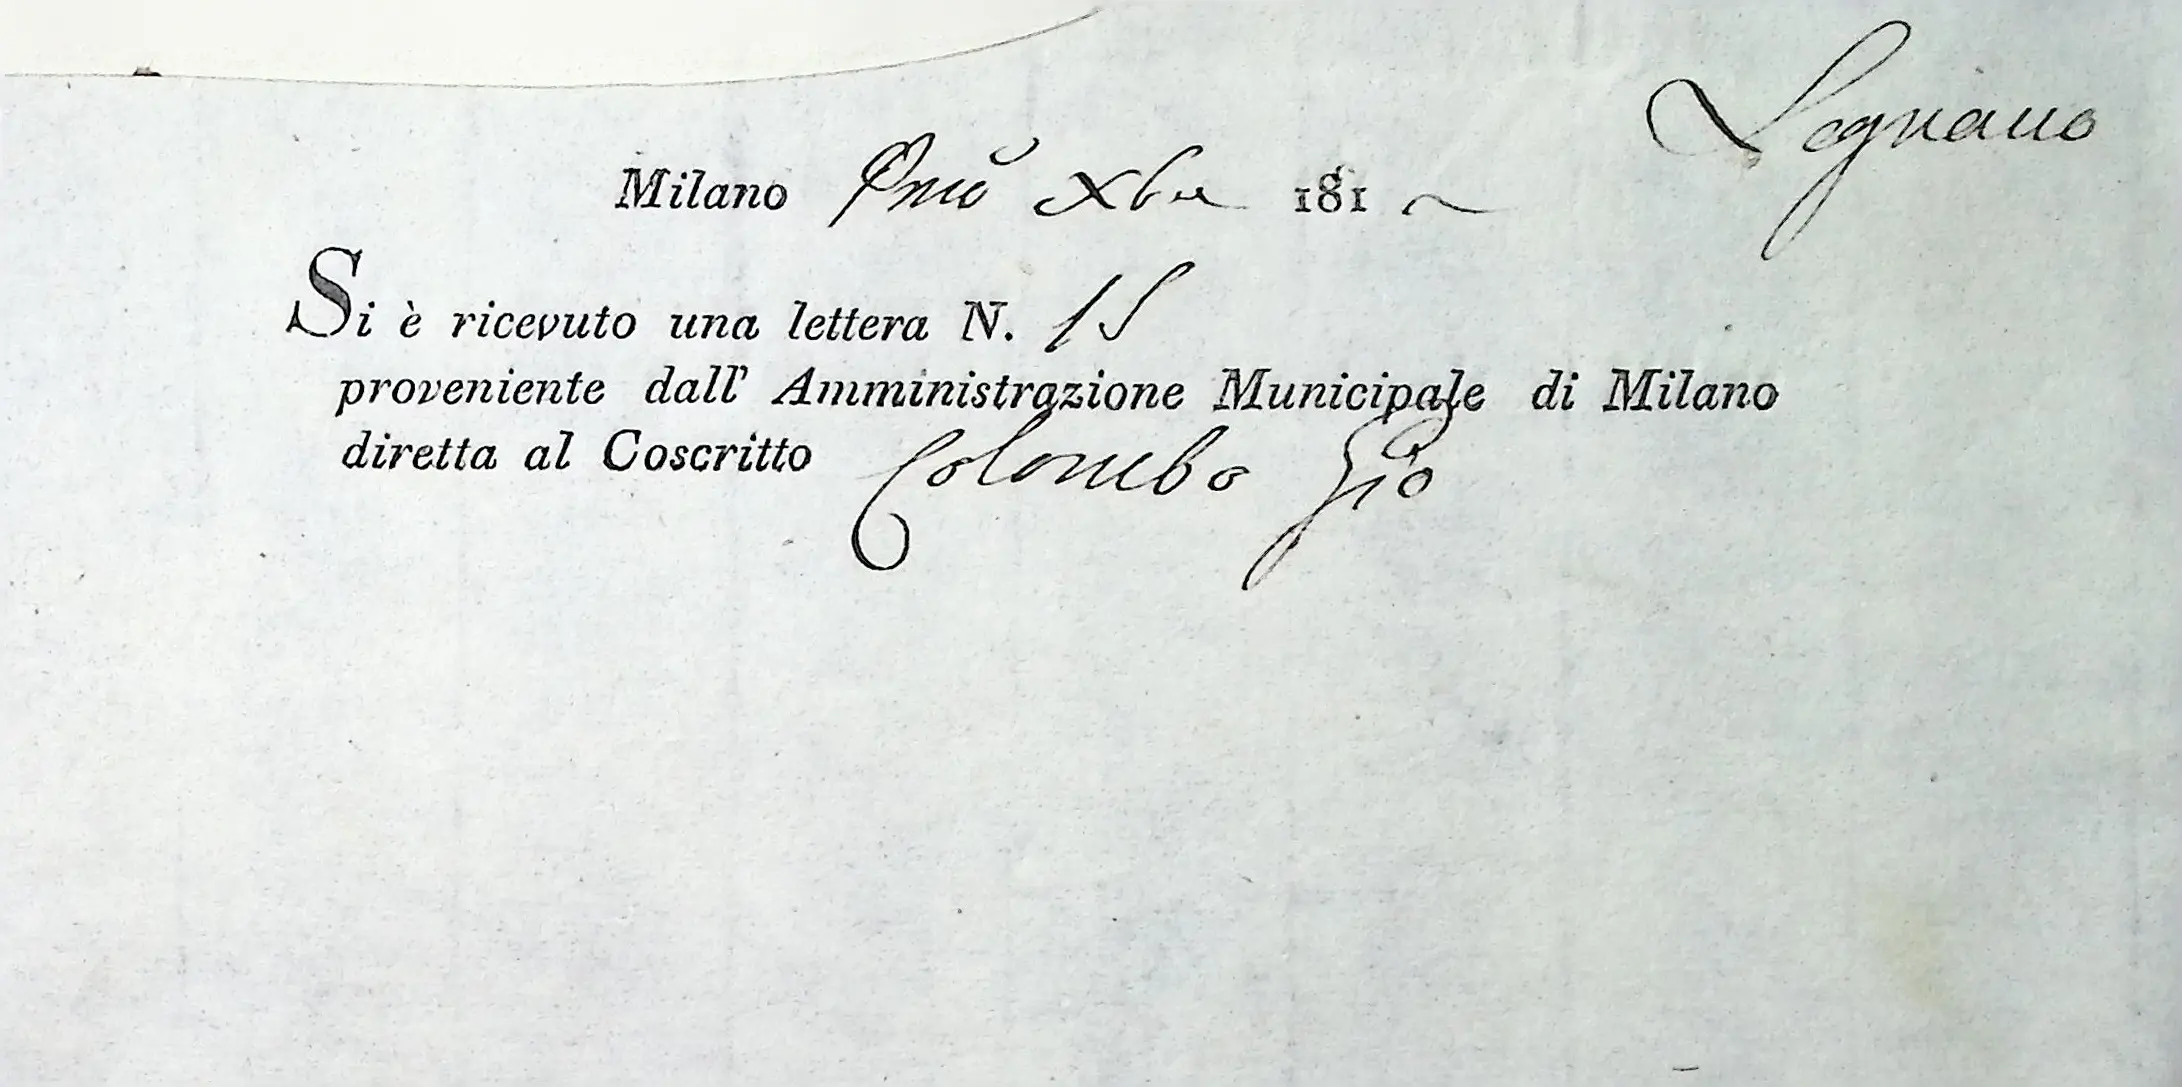 Legnano
Milano Pmo Xbre 181
Si è ricevuto una lettera N. 15
proveniente dall' Amministrazione Municipale di Milano
diretta al Coscritto Colombo Gio